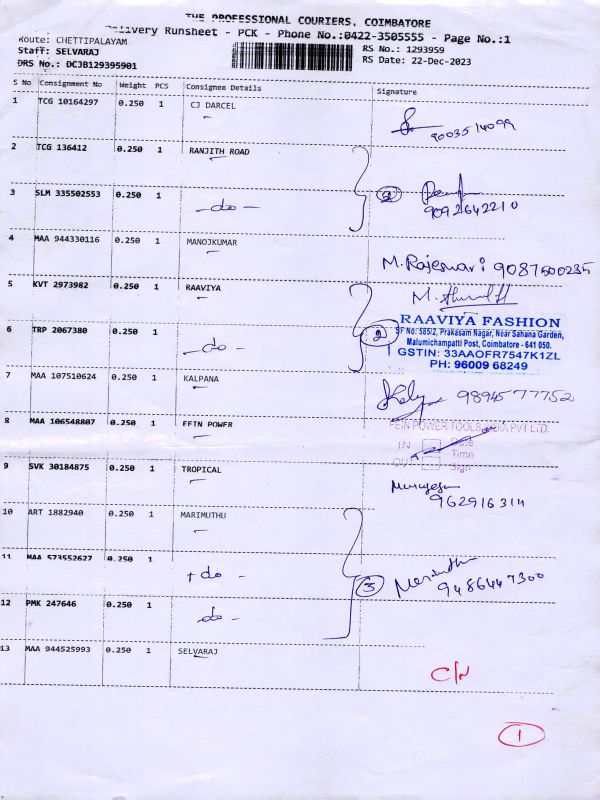 THE PROFESSIONAL COURIERS, COIMBATORE
Delivery Runsheet - PCK - Phone No.:0422-3505555 - Page No.:1
Route: CHETTIPALAYAM
RS No.: 1293959
Staff: SELVARAJ
RS Date: 22-Dec-2023
DRS No.: DCJB129395901
S No Consignment No Weight PCS Consignee Details Signature
1 TCG 10164297 0.250 1 CJ DARCEL
9003514099
2 TCG 136412 0.250 1 RANJITH ROAD
3 SLM 335502553 0.250 1 -do- 2
9092642210
4 MAA 944330116 0.250 1 MANOJKUMAR
M. Rajeswari 9087500235
5 KVT 2973982 0.250 1 RAAVIYA
RAAVIYA FASHION
SF No: 585/2, Prakasam Nagar, Near Sahana Garden,
6 TRP 2067380 0.250 1 -do- 2
Malumichampatti Post, Coimbatore - 641 050.
GSTIN: 33AAOFR7547K1ZL
PH: 96009 68249
7 MAA 107510624 0.250 1 KALPANA
9894577752
8 MAA 106548807 0.250 1 FEIN POWER
FEIN POWER TOOLS INDIA PVT LTD.
IN Date
Time
OUT Sign
9 SVK 30184875 0.250 1 TROPICAL
Murugesan
962916314
10 ART 1882940 0.250 1 MARIMUTHU
11 MAA 573552627 0.250 1 -do- 3
Marimuthu
9486447300
12 PMK 247646 0.250 1 -do-
13 MAA 944525993 0.250 1 SELVARAJ
C/N
1